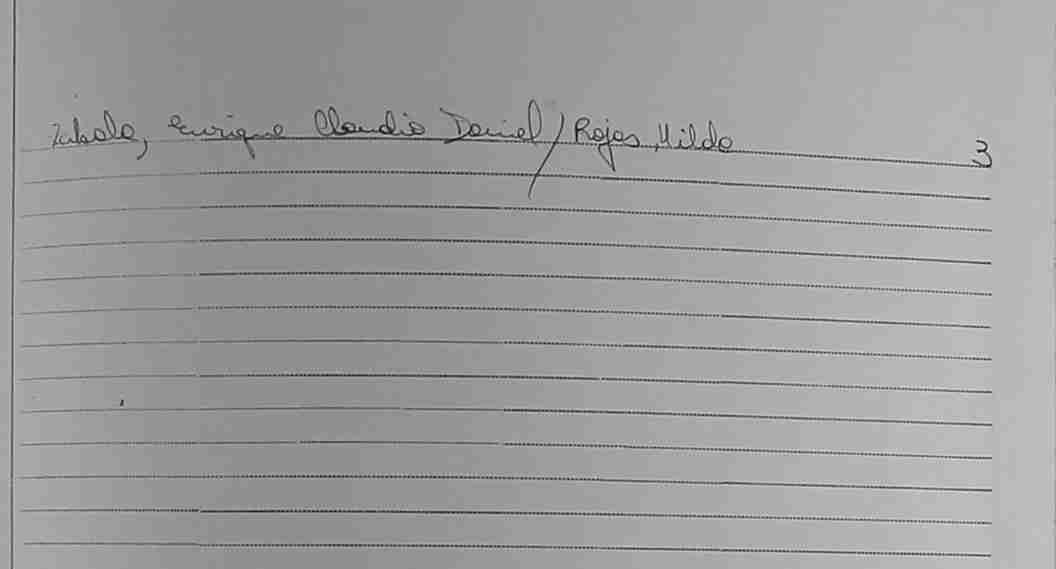 Zabala, Enrique Claudio Daniel / Rojas, Hilda 3